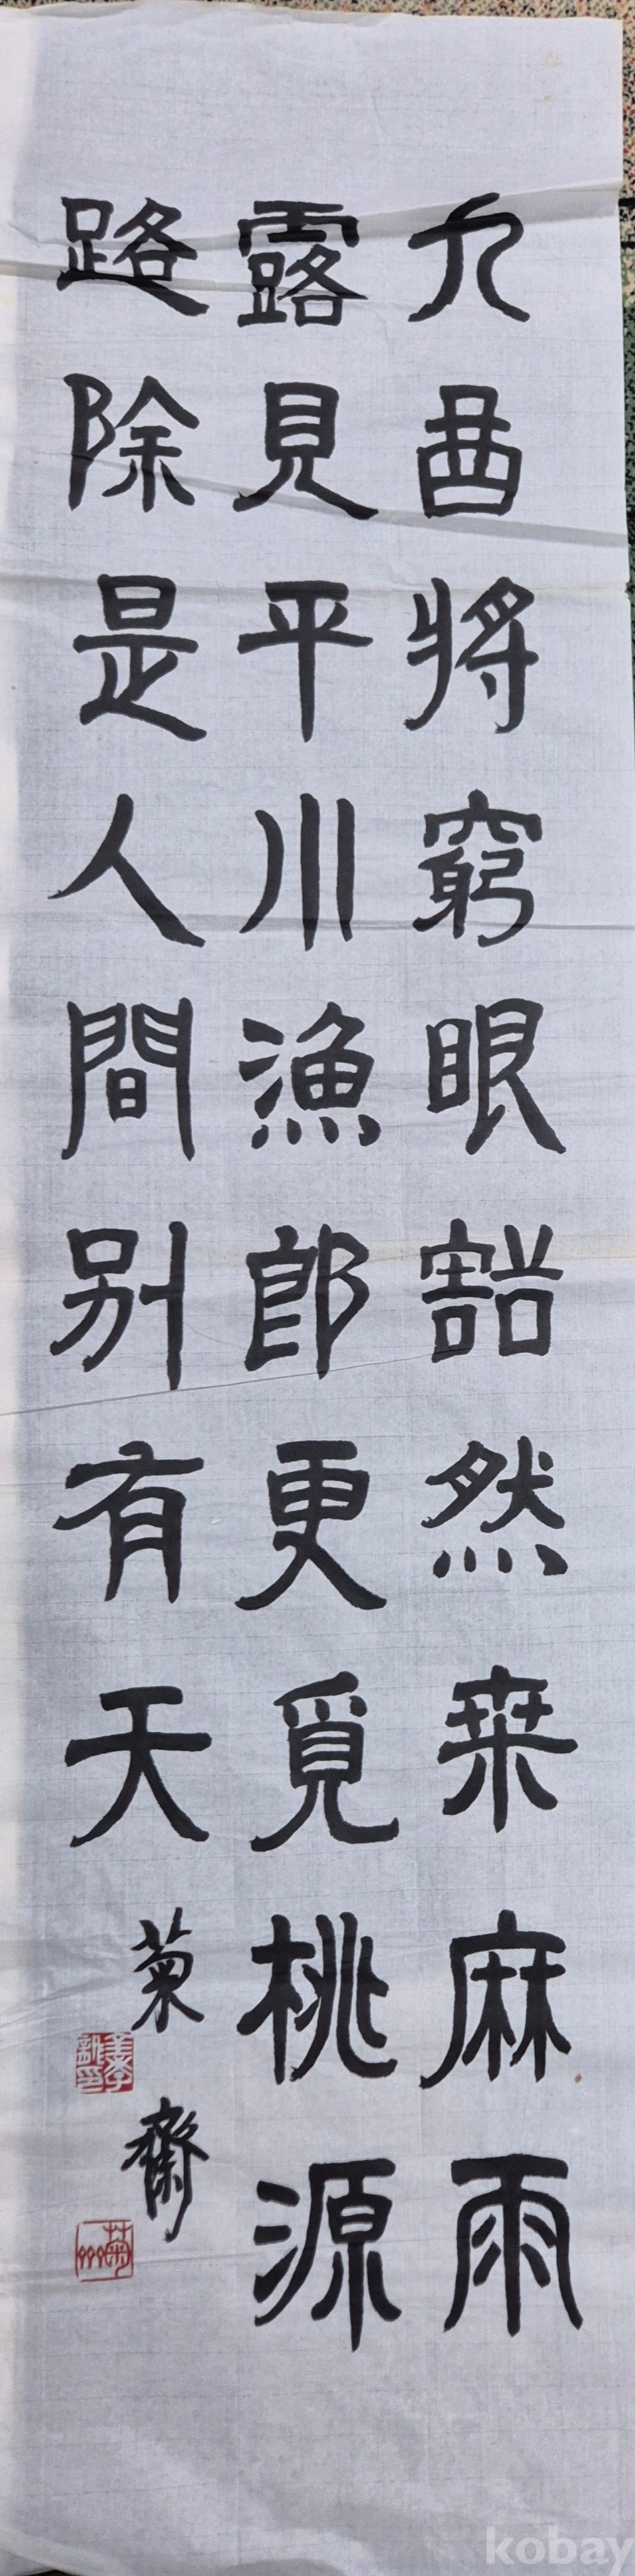 九曲將窮眼豁然桒麻雨
露見平川漁郎更覓桃源
路除是人間別有天
菊齋
kobay